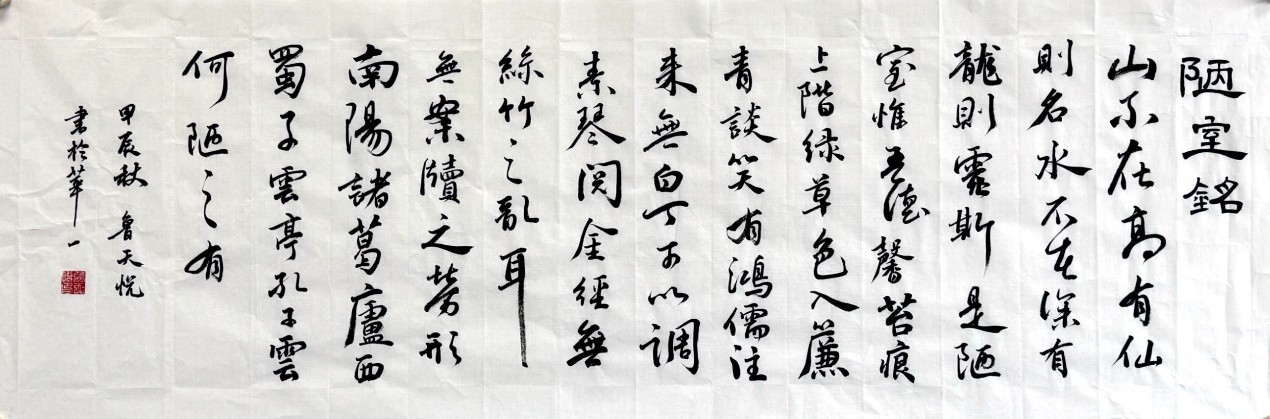 陋室銘
山不在高有仙
則名水不在深有
龍則靈斯是陋
室惟吾德馨苔痕
上階绿草色入簾
青談笑有鴻儒往
来無白丁可以調
素琴閱金經無
絲竹之亂耳
無案牘之勞形
南陽諸葛廬西
蜀子雲亭孔子雲
何陋之有
甲辰秋 魯天悦
書於華一